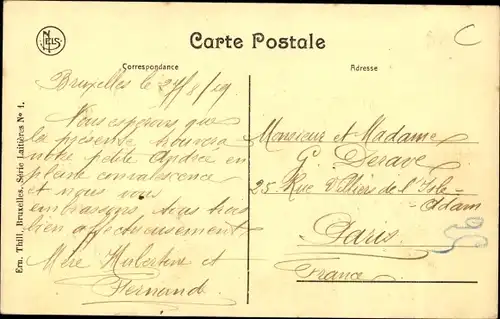 NELS
Carte Postale
Correspondance
Adresse
C
Ern. Thill, Bruxelles, Série Laitières No 1.
Bruxelles le 27/8/19
Nous espérons que
la présente trouvera
notre petite Andrée en
pleine convalescence
et nous vous
embrassons tous trois
bien affectueusement
Mère Hubertine et
Fernand
Monsieur et Madame
G. Derave
25 Rue Villiers de l'Isle-
Adam
Paris
France